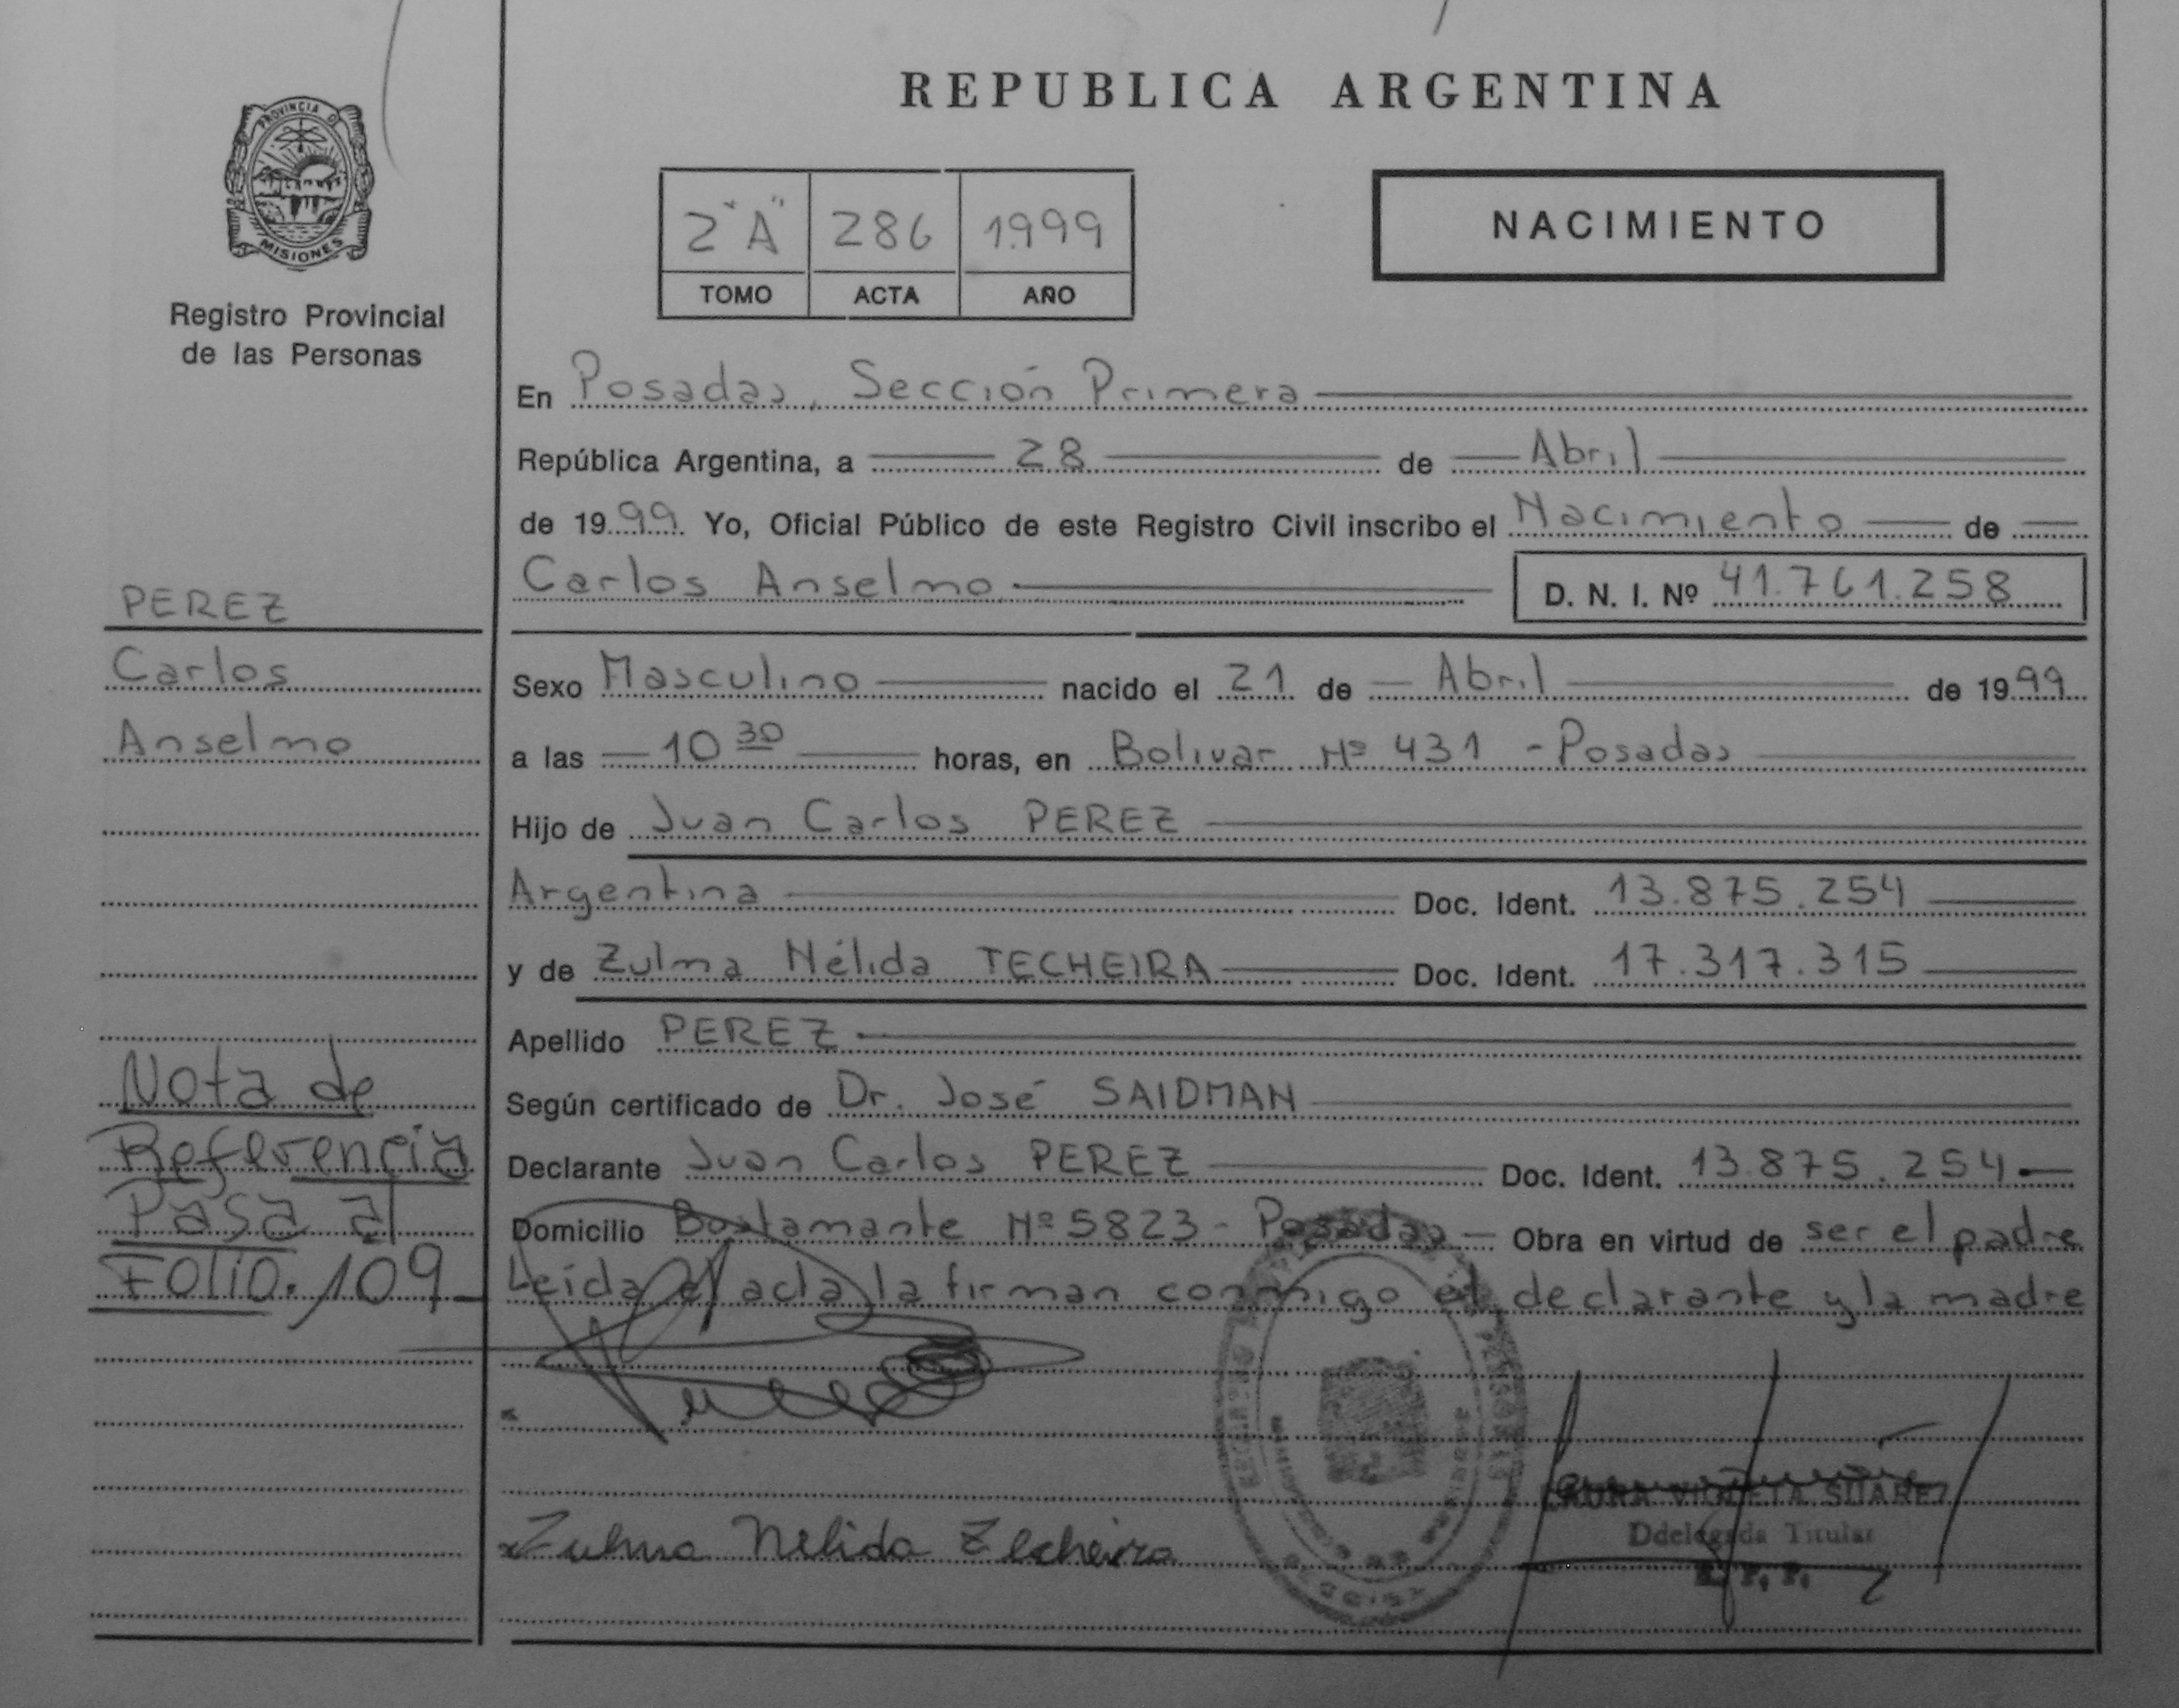 REPUBLICA ARGENTINA
PROVINCIA D
MISIONES
Registro Provincial
de las Personas
2 "A" 286 1999
TOMO ACTA AÑO
NACIMIENTO
En Posadas, Sección Primera
República Argentina, a 28 de Abril
de 1999 Yo, Oficial Público de este Registro Civil inscribo el Nacimiento de
Carlos Anselmo D. N. I. Nº 41.761.258
Sexo Masculino nacido el 21 de Abril de 1999
a las 10 30 horas, en Bolivar Nº 431 - Posadas
Hijo de Juan Carlos PEREZ
Argentina Doc. Ident. 13.875.254
y de Zulma Nélida TECHEIRA Doc. Ident. 17.317.315
Apellido PEREZ
Según certificado de Dr. José SAIDMAN
Declarante Juan Carlos PEREZ Doc. Ident. 13.875.254
Domicilio Bustamante Nº 5823 - Posadas Obra en virtud de ser el padre
Leída el acta la firman conmigo el declarante y la madre
PEREZ
Carlos
Anselmo
Nota de
Referencia
Pasa al
Folio. 109
Zulma Nélida Techeira
LAURA VIOLETA SUAREZ
Ddelegada Titular
R. P. P.